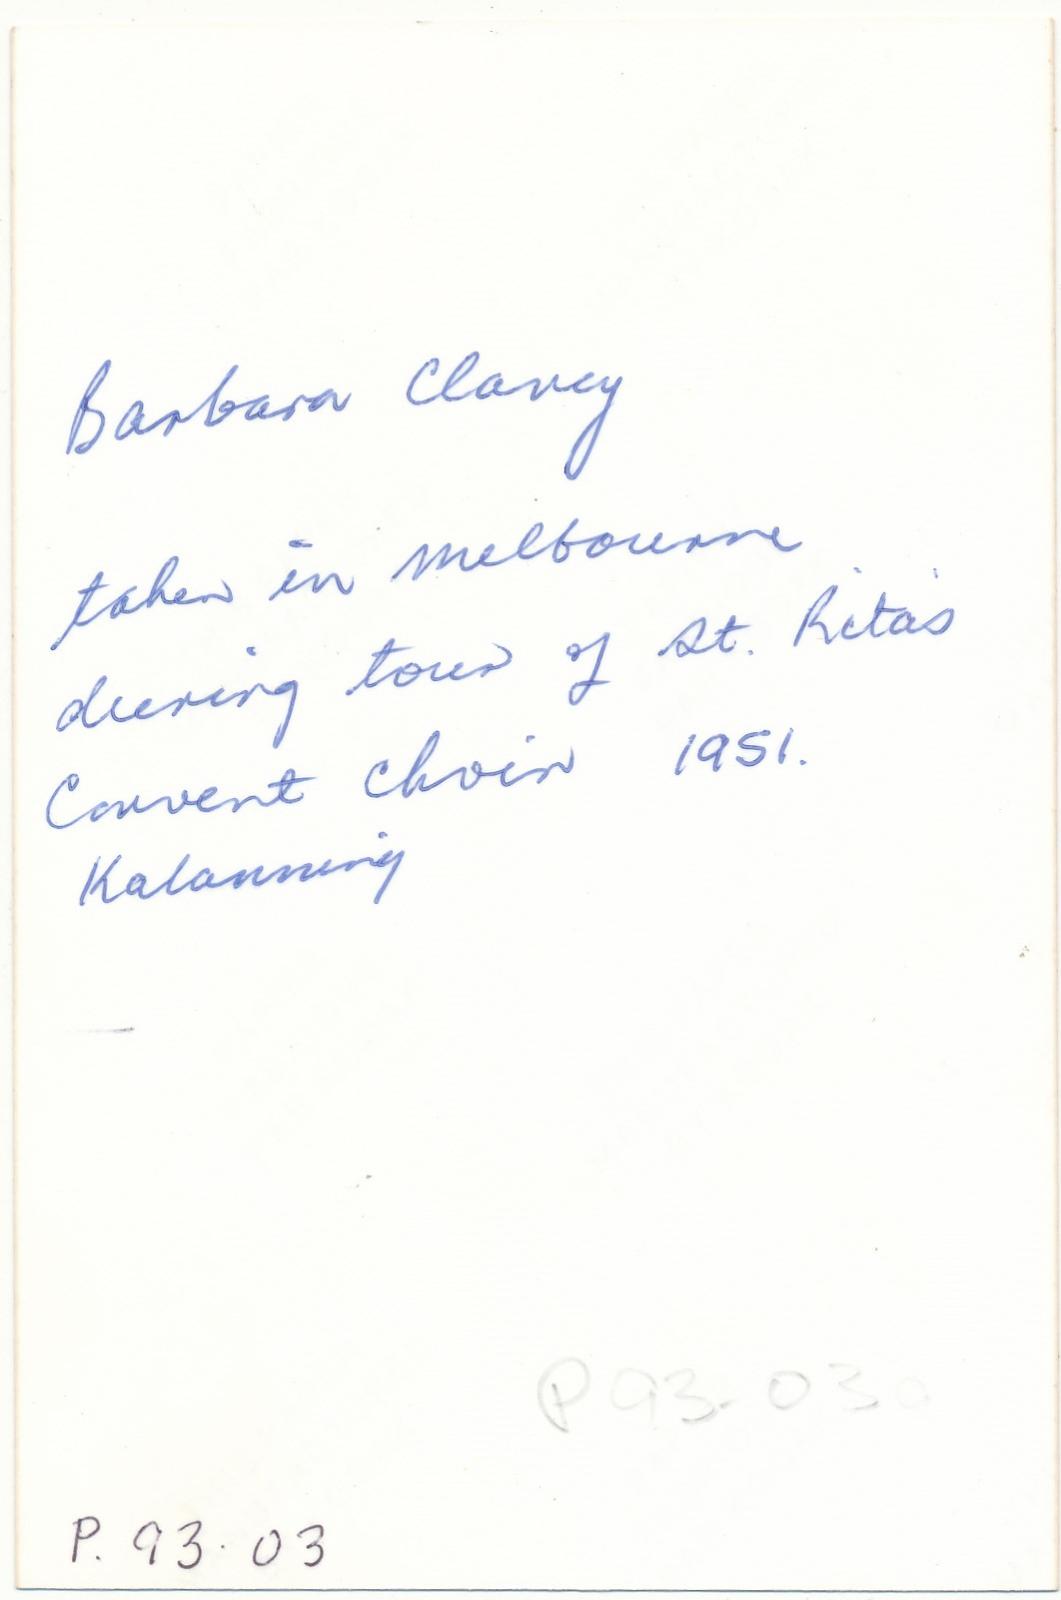 Barbara Clavey
taken in Melbourne
during tour of St. Rita's
Convent Choir 1951.
Katanning
P93.03
P. 93.03